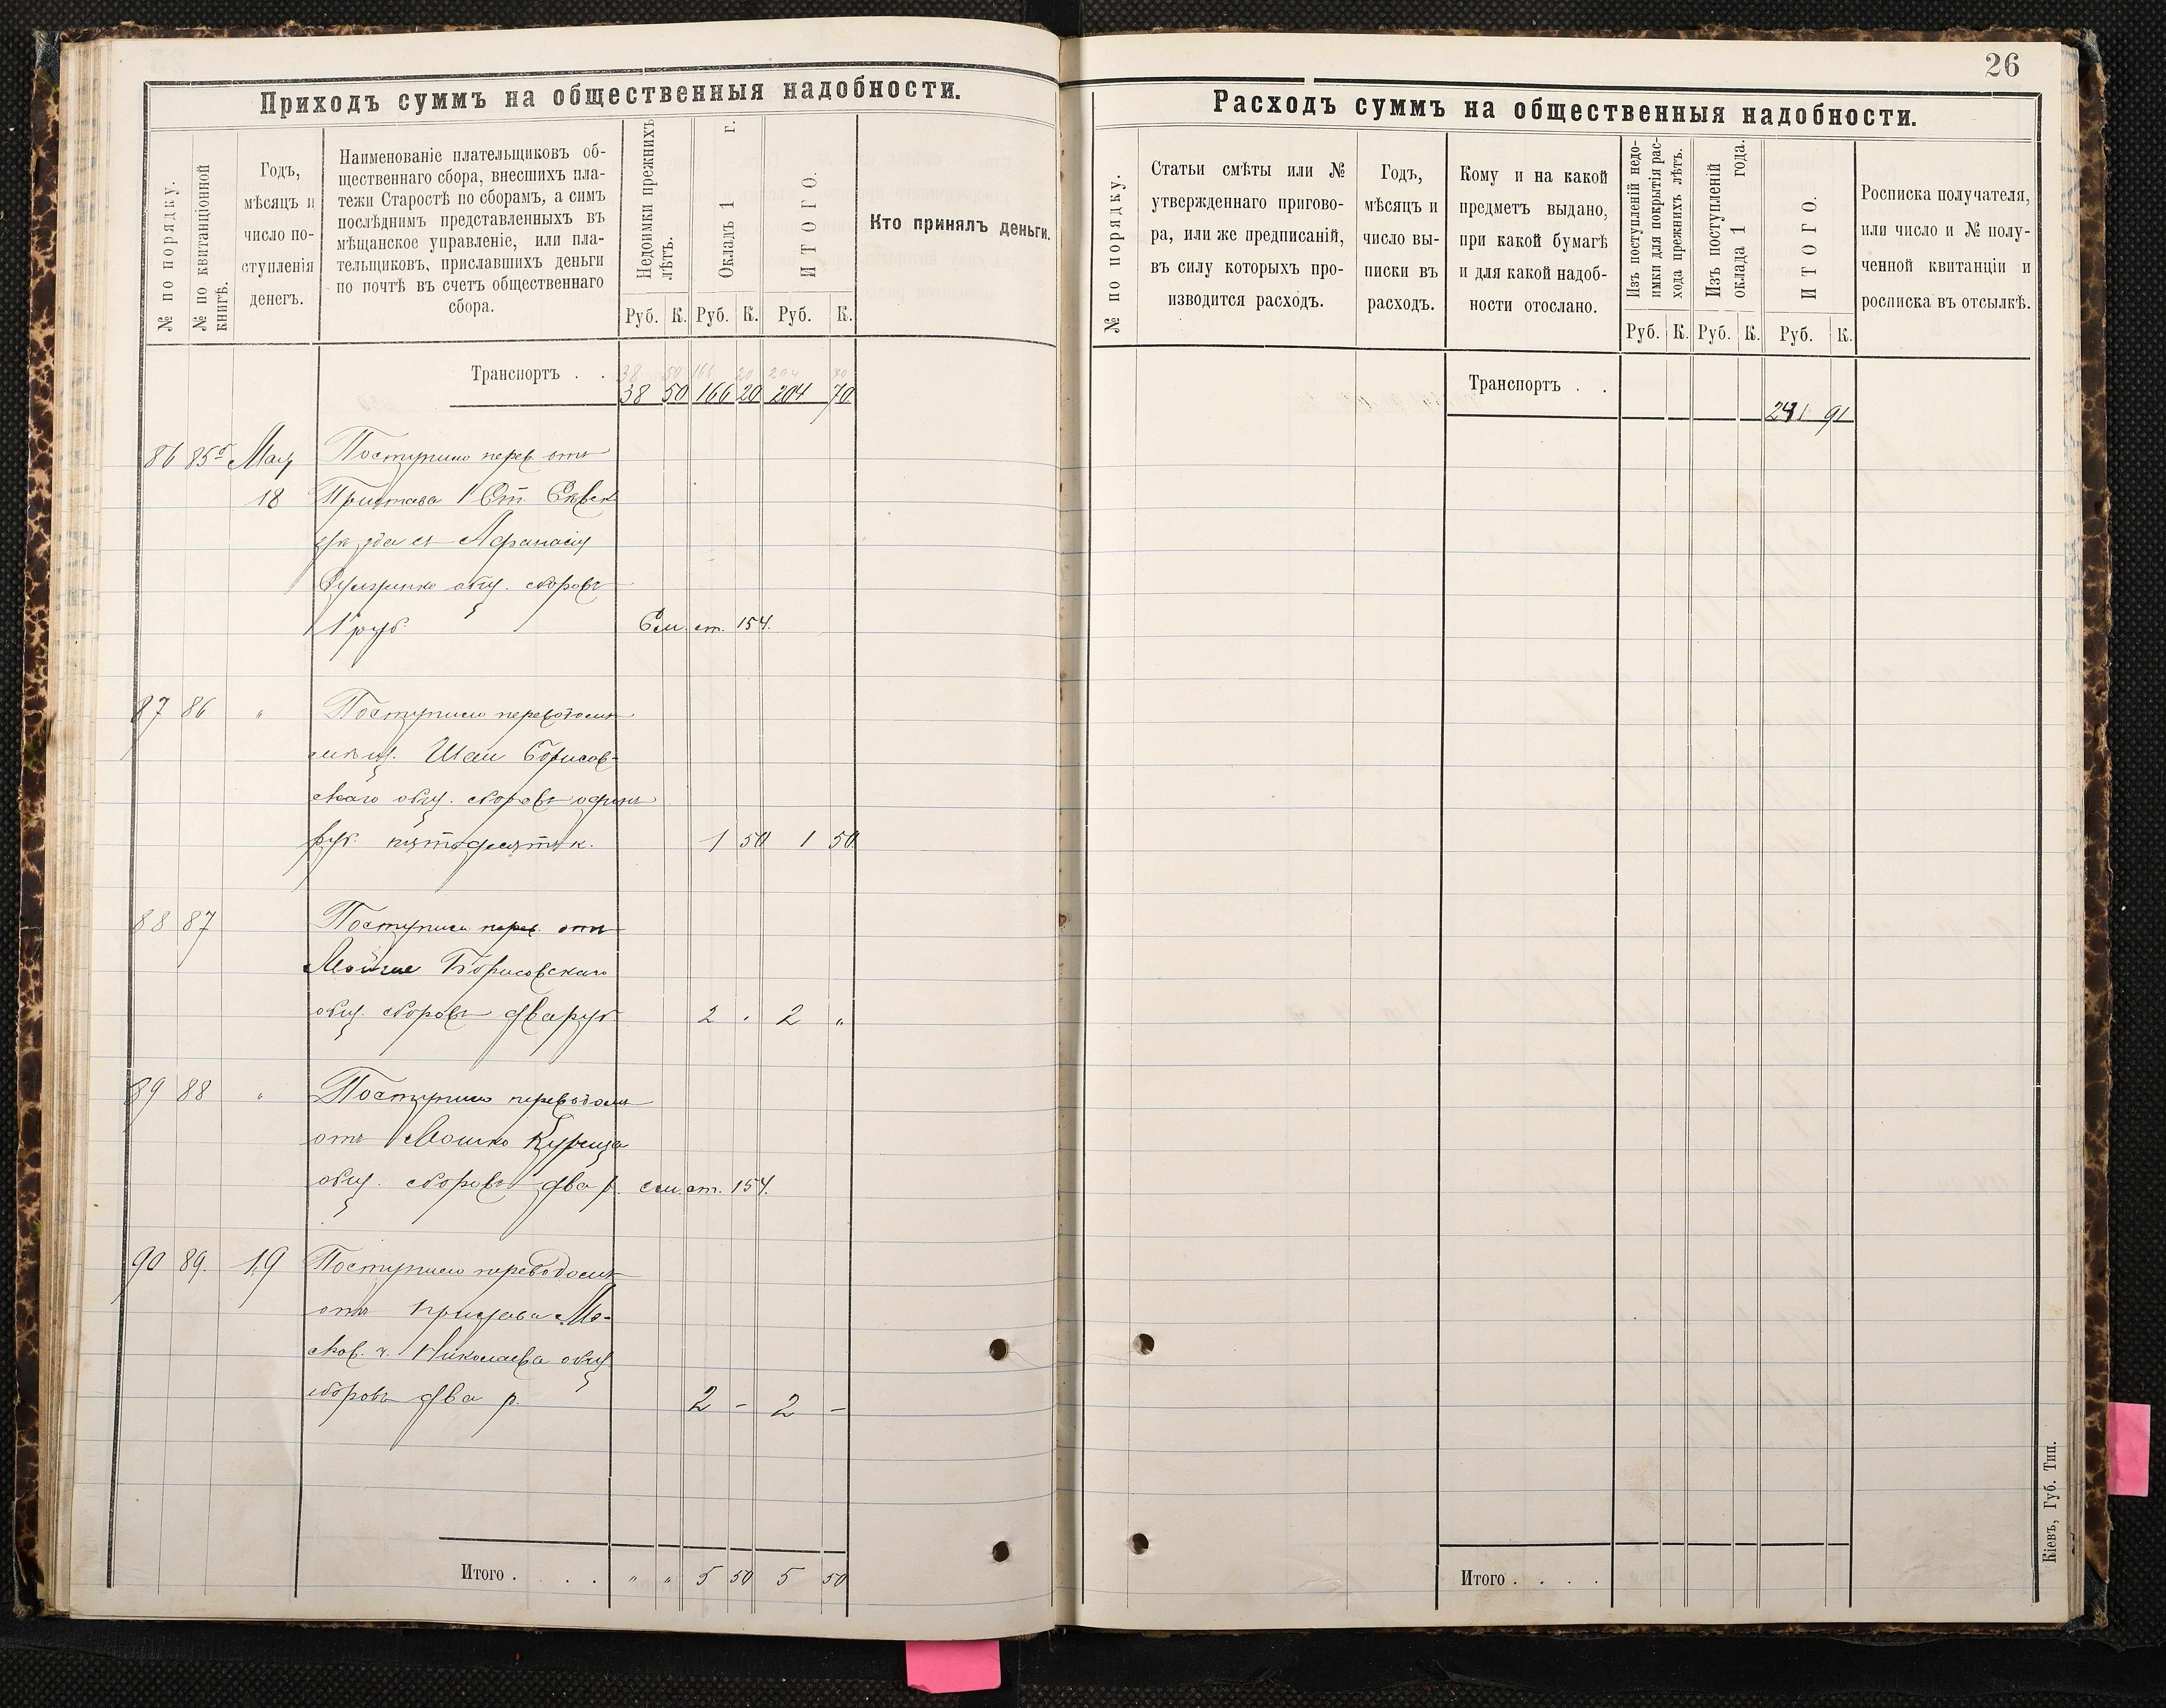 Приходъ суммъ на общественныя надобности.
№ по порядку.
№ по квитанціонной
книгѣ.
Годъ,
мѣсяцъ и
число по-
ступленія
денегъ.
Наименованіе плательщиковъ об-
щественнаго сбора, внесшихъ пла-
тежи Старостѣ по сборамъ, а симъ
послѣднимъ представленныхъ въ
мѣщанское управленіе, или пла-
тельщиковъ, приславшихъ деньги
по почтѣ въ счетъ общественнаго
сбора.
Недоимки прежнихъ
лѣтъ.
Окладъ 1 г.
ИТОГО.
Кто принялъ деньги.
Руб. К. Руб. К. Руб. К.
38 50 166 20 204 70
Транспортъ . .
38 50 166 20 204 70
86 85 Мая Поступило перев. отъ
18 Пристава 1 Ст.
уѣзда съ Афанасія
общ. сборовъ
1 руб. См. ст. 154.
87 86 " Поступило переводомъ
мѣщ. Шаи Борисов-
скаго общ. сборовъ одинъ
руб. пятьдесятъ к. 1 50 1 50
88 87 Поступило перев. отъ
Борисовскаго
общ. сборовъ два руб. 2 " 2 "
89 88 " Поступило переводомъ
отъ Мошко
общ. сборовъ два р. см. ст. 154.
90 89. 19 Поступило переводомъ
отъ Пристава Мо-
сков. ч. Николаева общ.
сборовъ два р. 2 - 2 -
Итого . . . . " " 5 50 5 50
26
Расходъ суммъ на общественныя надобности.
№ по порядку.
Статьи смѣты или №
утвержденнаго пригово-
ра, или же предписаній,
въ силу которыхъ про-
изводится расходъ.
Годъ,
мѣсяцъ и
число вы-
писки въ
расходъ.
Кому и на какой
предметъ выдано,
при какой бумагѣ
и для какой надоб-
ности отослано.
Изъ поступленій недо-
имки для покрытія рас-
хода прежнихъ лѣтъ.
Изъ поступленій
оклада 1 года.
ИТОГО.
Росписка получателя,
или число и № полу-
ченной квитанціи и
росписка въ отсылкѣ.
Руб. К. Руб. К. Руб. К.
Транспортъ . .
91
Итого . . . .
Кіевъ, Губ. Тип.